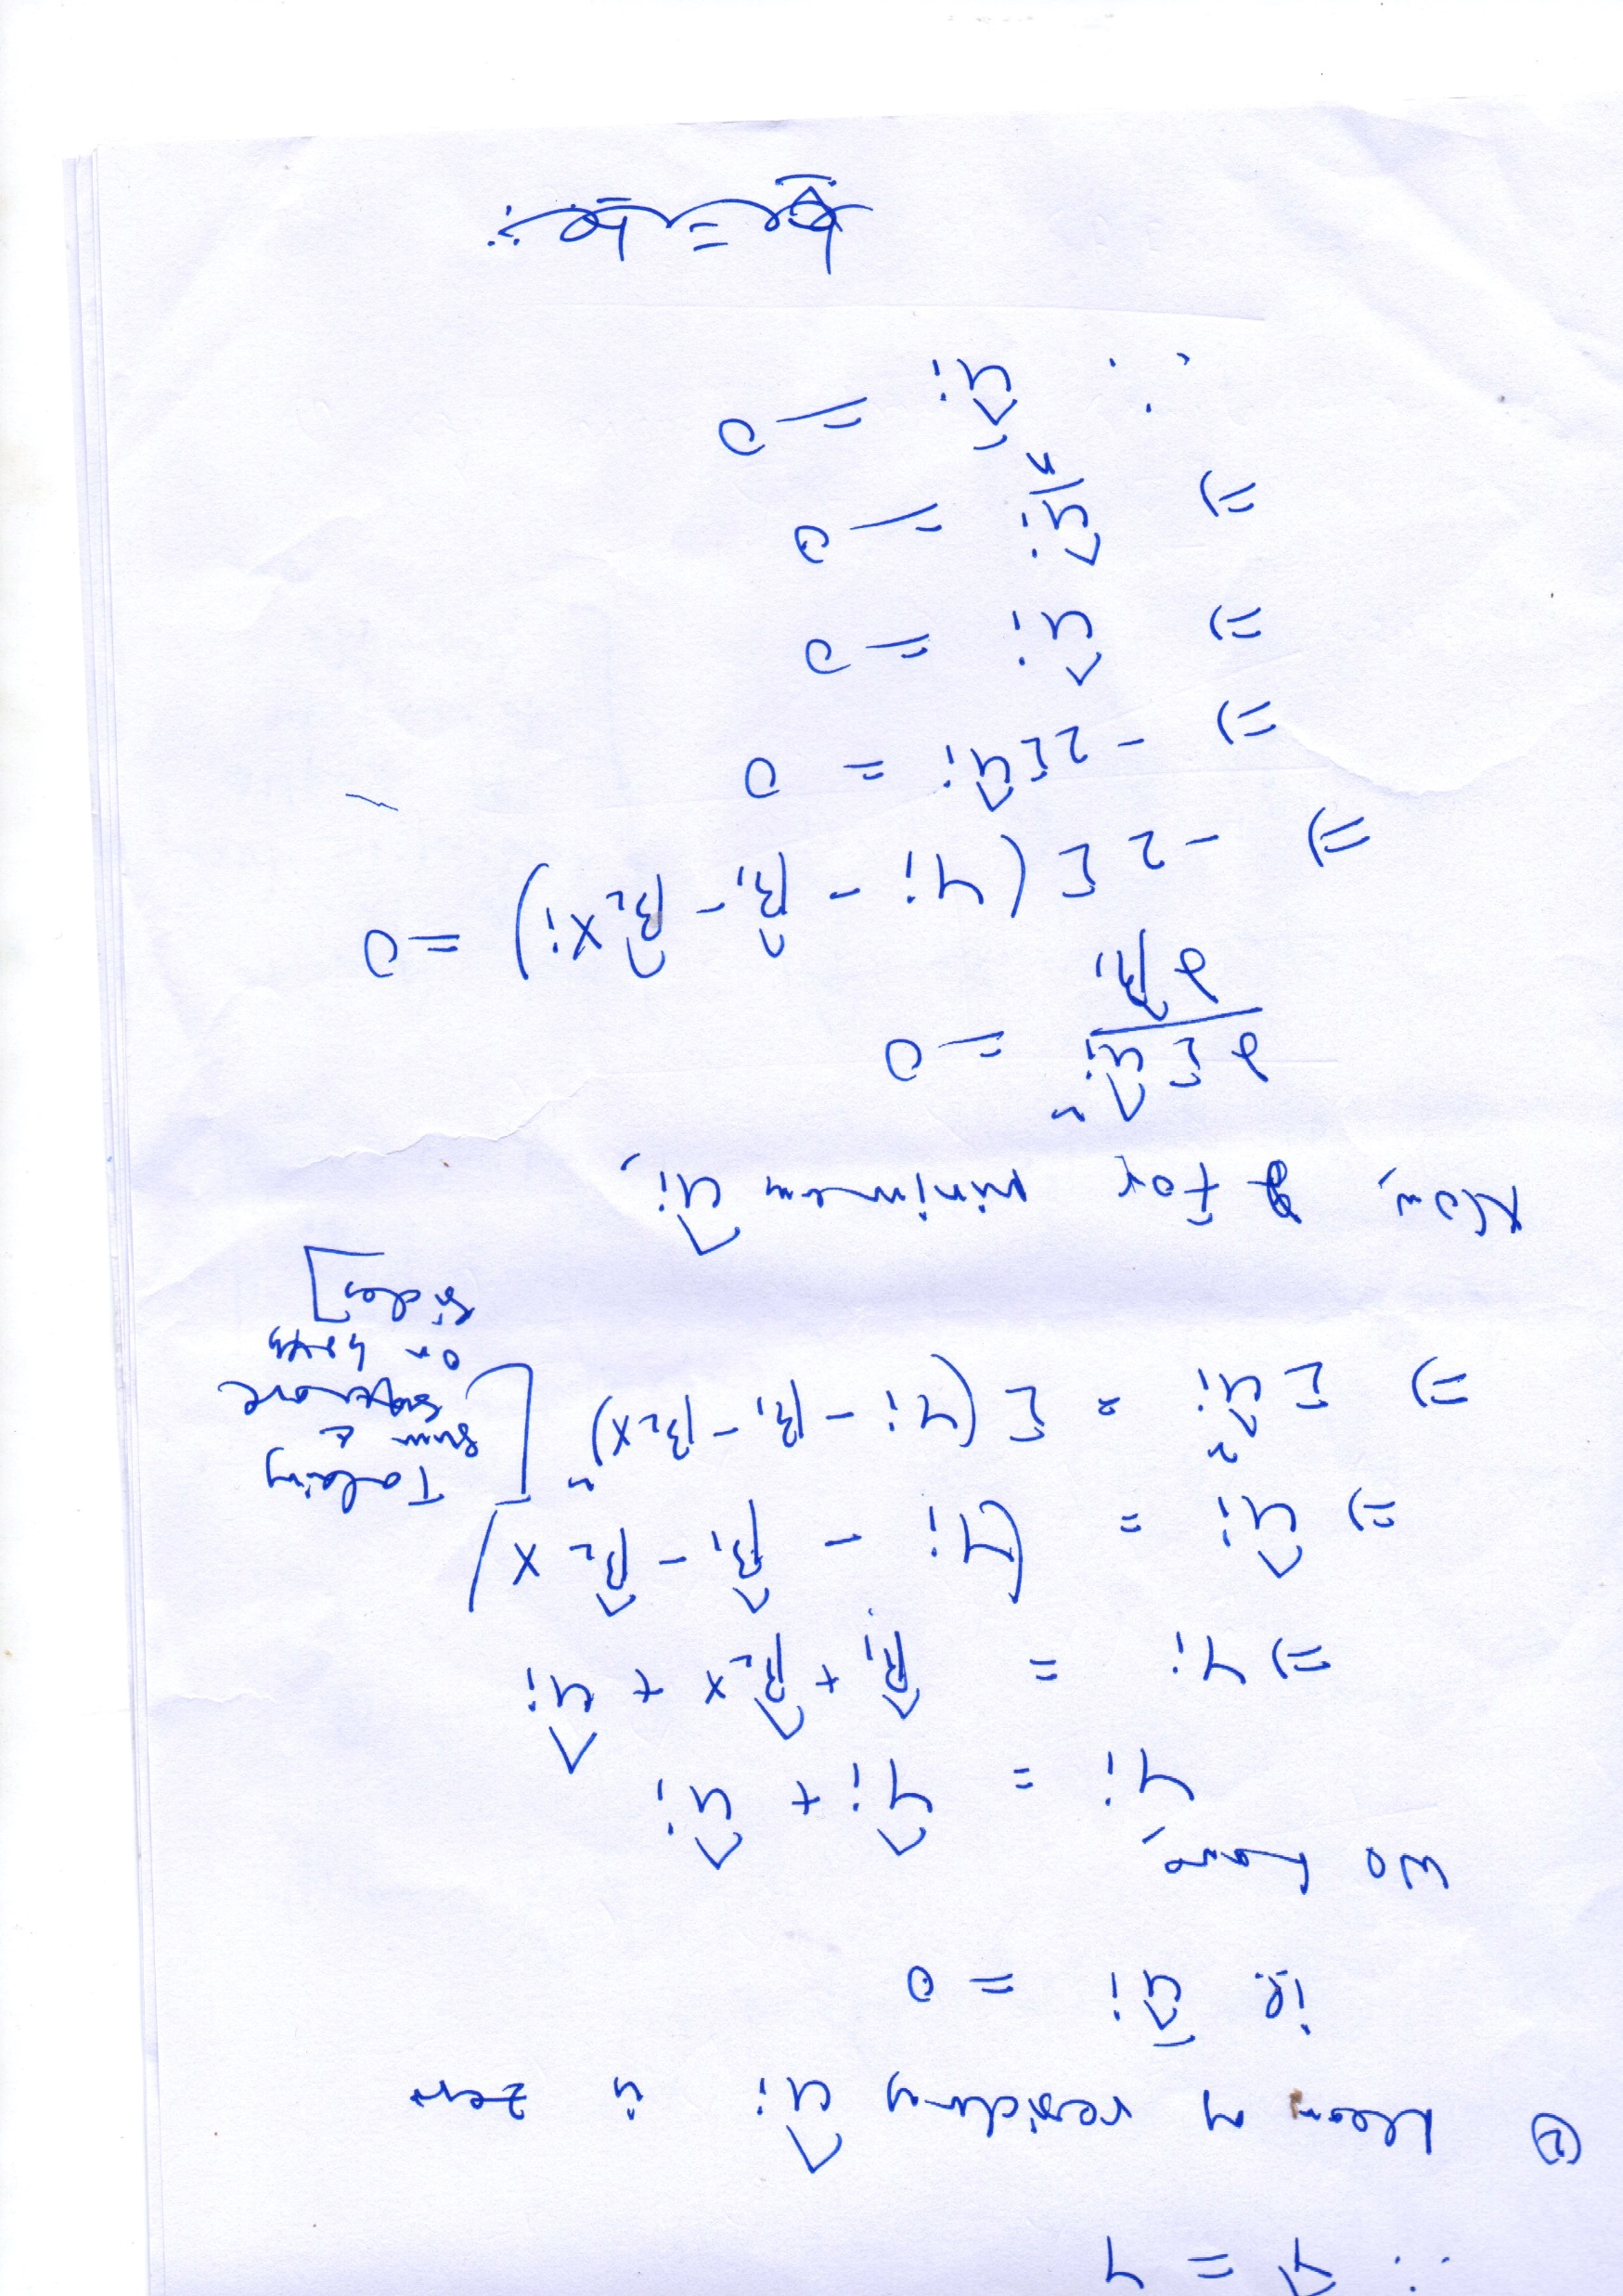 ∴ Ȳ̂ = Ȳ
② Mean of residuals ûi is zero
ie û̄i = 0
we have,
Yi = Ŷi + ûi
=) Yi = β̂1 + β̂2x + ûi
=) ûi = (Yi - β̂1 - β̂2 x)
=) Σûi² = Σ(Yi - β1 - β2x)² [Taking
sum &
square
on both
sides]
Now, for minimum ûi,
∂Σûi² / ∂β̂1 = 0
=) -2Σ(Yi - β̂1 - β̂2xi) = 0
=) -2Σûi = 0
=) ûi = 0
=) ûi/n = 0
∴ û̄i = 0